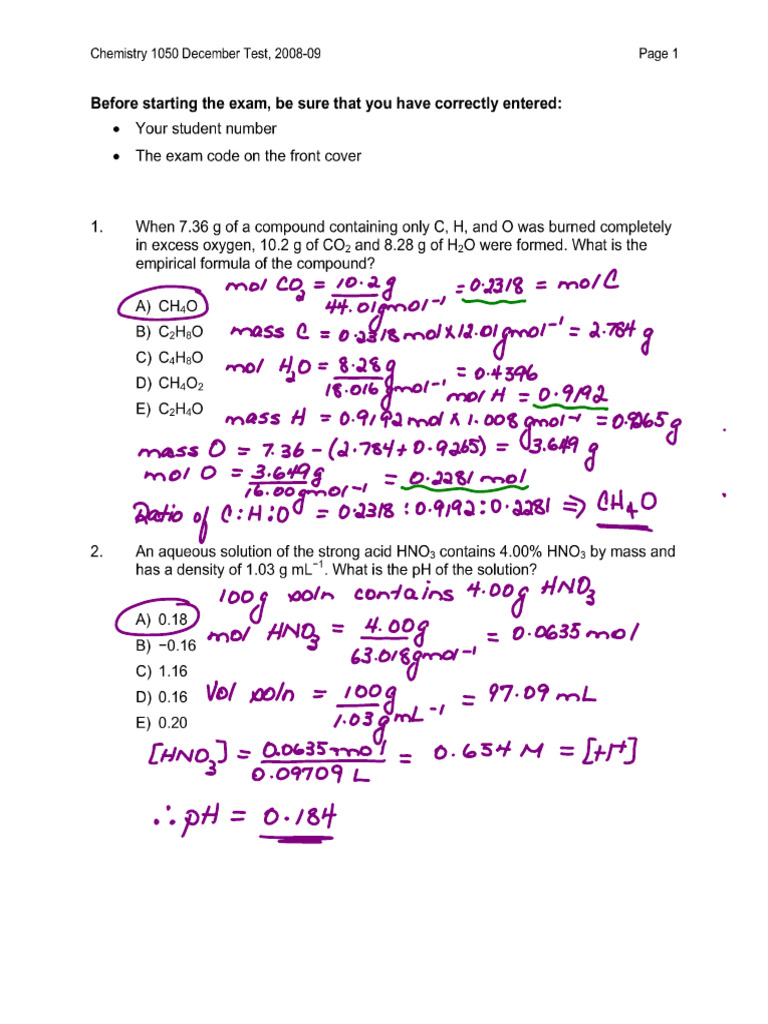 Chemistry 1050 December Test, 2008-09 Page 1
Before starting the exam, be sure that you have correctly entered:
• Your student number
• The exam code on the front cover
1. When 7.36 g of a compound containing only C, H, and O was burned completely
in excess oxygen, 10.2 g of CO₂ and 8.28 g of H₂O were formed. What is the
empirical formula of the compound?
mol CO₂ = 10.2g / 44.01gmol⁻¹ = 0.2318 = mol C
A) CH₄O
B) C₂H₈O
mass C = 0.2318mol×12.01gmol⁻¹ = 2.784 g
C) C₄H₈O
mol H₂O = 8.28g / 18.016gmol⁻¹ = 0.4396
D) CH₄O₂
mol H = 0.9192
E) C₂H₄O
mass H = 0.9192mol × 1.008gmol⁻¹ = 0.9265g
mass O = 7.36 - (2.784 + 0.9265) = 3.649 g
mol O = 3.649g / 16.00gmol⁻¹ = 0.2281 mol
Ratio of C:H:O = 0.2318 : 0.9192 : 0.2281 ⇒ CH₄O
2. An aqueous solution of the strong acid HNO₃ contains 4.00% HNO₃ by mass and
has a density of 1.03 g mL⁻¹. What is the pH of the solution?
100g soln contains 4.00g HNO₃
A) 0.18
mol HNO₃ = 4.00g / 63.018gmol⁻¹ = 0.0635 mol
B) −0.16
C) 1.16
D) 0.16
Vol soln = 100g / 1.03gmL⁻¹ = 97.09 mL
E) 0.20
[HNO₃] = 0.0635mol / 0.09709 L = 0.654 M = [H⁺]
∴ pH = 0.184